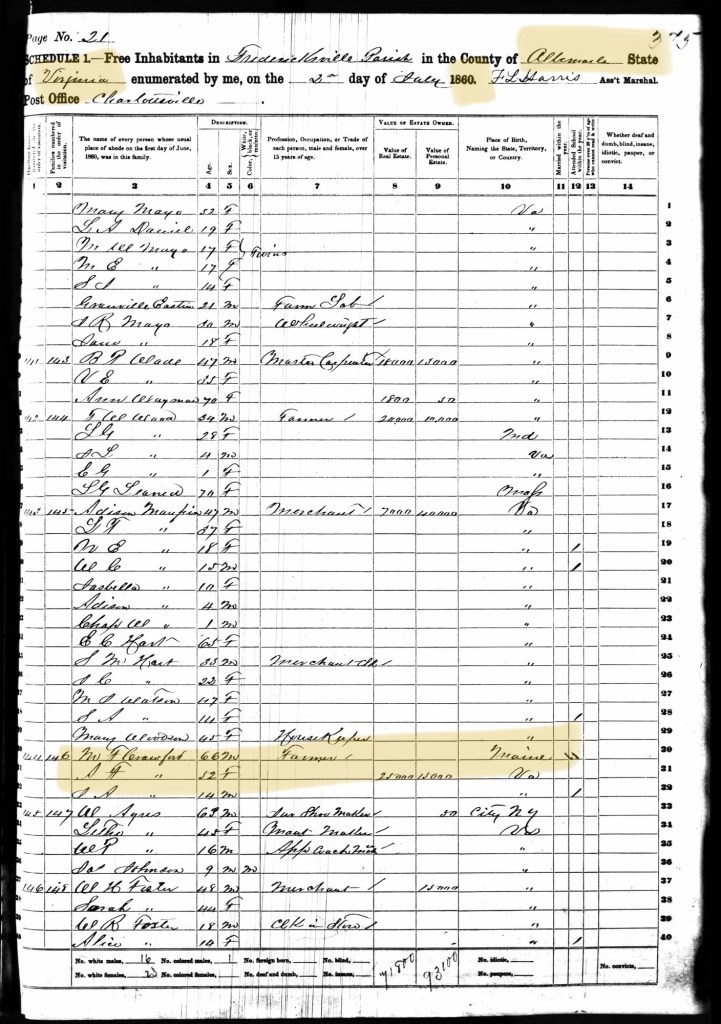 Page No. 21
375
SCHEDULE 1.—Free Inhabitants in Frederickville Parish in the County of Albemarle State
of Virginia enumerated by me, on the 2n day of July 1860. F L Harris Ass't Marshal.
Post Office Charlottesville
DESCRIPTION. VALUE OF ESTATE OWNED.
Families numbered in the order of visitation.
The name of every person whose usual place of abode on the first day of June, 1860, was in this family.
Age. Sex. Color, White, black, or mulatto.
Profession, Occupation, or Trade of each person, male and female, over 15 years of age.
Value of Real Estate. Value of Personal Estate.
Place of Birth, Naming the State, Territory, or Country.
Married within the year. Attended School within the year.
Whether deaf and dumb, blind, insane, idiotic, pauper, or convict.
1 2 3 4 5 6 7 8 9 10 11 12 13 14
Mary Mayo 52 F Va 1
L A Daniel 19 F " 2
M W Mayo 17 F Twins " 3
M E " 17 F " 4
S I " 14 F " 5
Granville Eastin 21 m Farm Lab / " 6
J R Mayo 20 m Wheelwright / " 7
Jane " 18 F " 8
143 B F Wade 47 m Master Carpenter / 18000 15000 " 9
V E " 35 F " 10
Ann Wayman 70 F 1800 50 " 11
144 T W Wood 34 m Farmer / 20,000 10,000 " 12
L G " 28 F Md 13
" 4 m Va 14
E G " 1 F " 15
L G 70 F Mass 16
145 Adison Maupin 47 m Merchant / 7000 40,000 Va 17
L F " 37 F " 18
M E " 18 F " 1 19
W C " 15 m " 1 20
Isabella " 10 F " 21
Adison " 4 m " 22
Chap W " 1 m " 23
E C Hart 65 F " 24
S M Hart 33 m Merchant / " 25
J C " 22 F " 26
M J Watson 47 F " 27
S A " 14 F " 1 28
Mary Woodson 45 F House Keeper " 29
146 M F Crawford 66 m Farmer / Maine 30
A H " 52 F 25000 15000 Va 31
A " 14 m " 1 32
147 W Ayres 63 m Shoe Maker / 50 City NY 33
" 45 F Mant Maker / Va 34
W P " 16 m App Coach " 35
Jas Johnson 9 m m " 36
146 148 W H Foster 48 m Merchant / 15000 " 37
Sarah " 44 F " 38
W R Foster 18 m Clk in Store / " 39
Alice " 14 F " 1 40
No. white males, 16 No. colored males, 1 No. foreign born, No. blind, No. idiotic,
No. white females, 23 No. colored females, No. deaf and dumb, No. insane, 71800 93100 No. paupers, No. convicts,